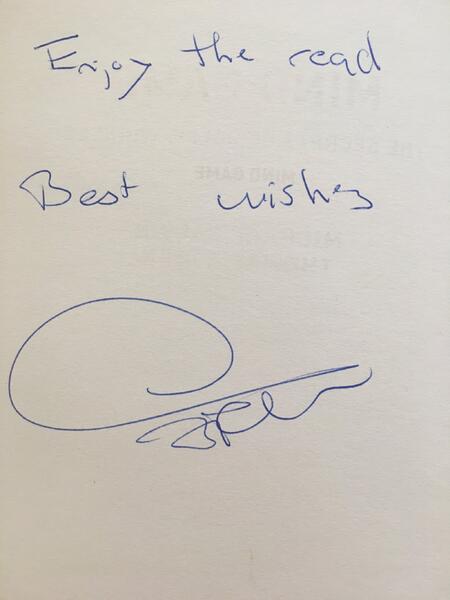 Enjoy the read
Best wishes